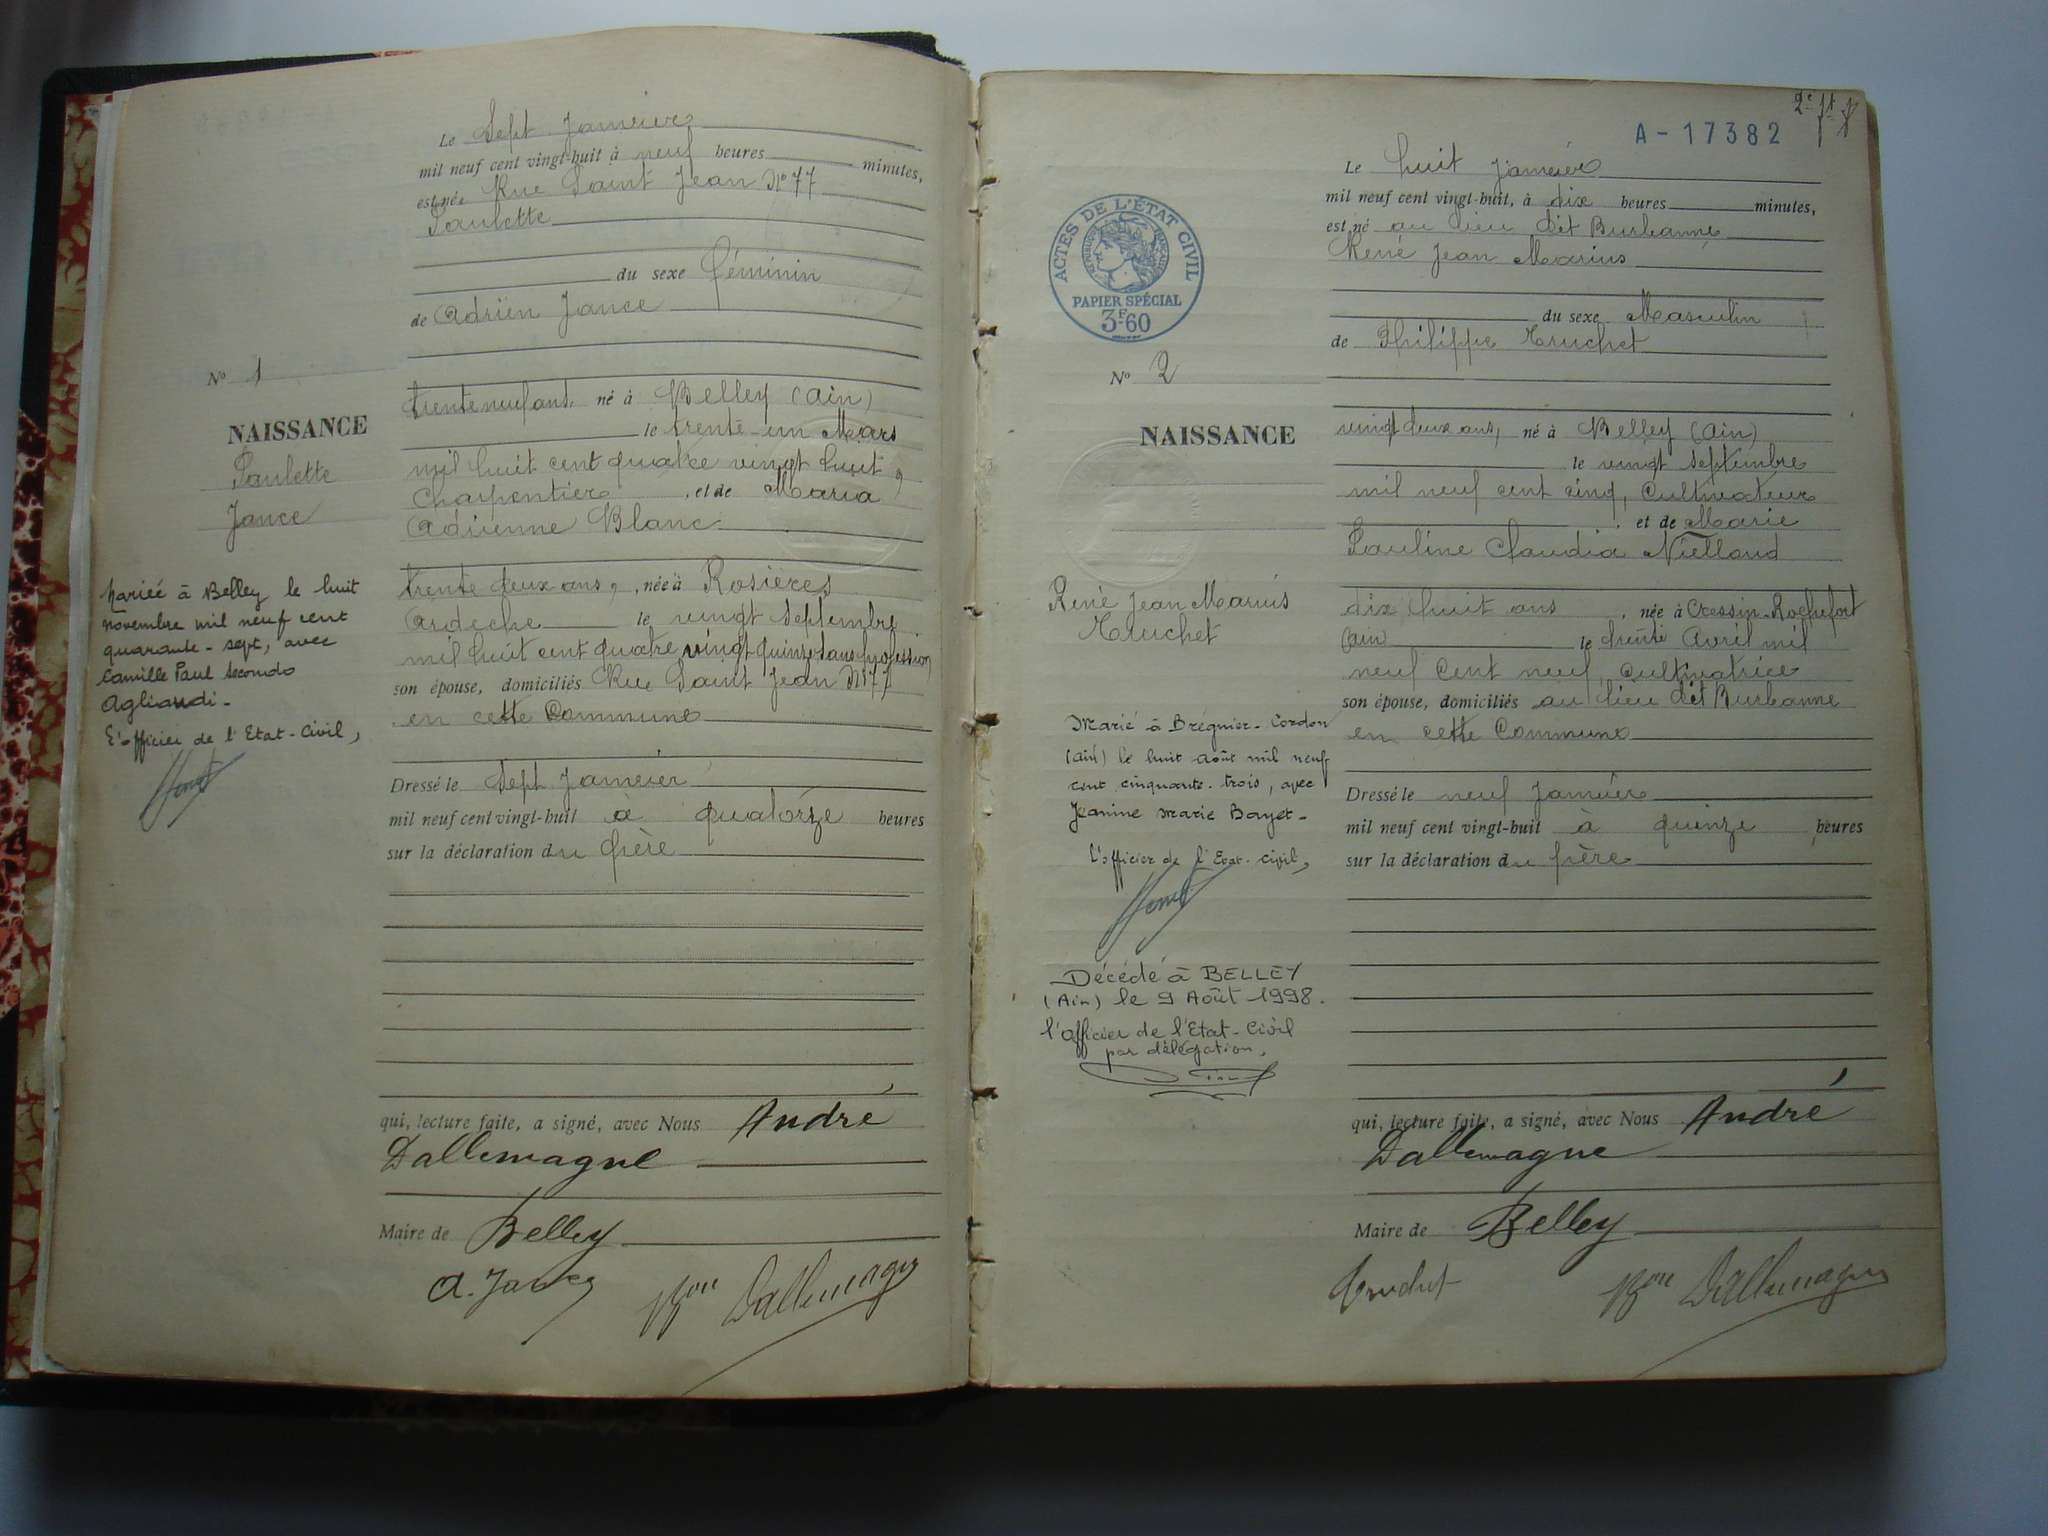 Le Sept Janvier
mil neuf cent vingt-huit à neuf heures minutes,
est né, Rue Saint Jean No 77
Paulette
du sexe féminin
de Adrien Jance
No 1
NAISSANCE
Paulette
Jance
trente neuf ans, né à Belley (Ain)
le trente-un Mars
mil huit cent quatre vingt huit,
Charpentier, et de Maria
Adrienne Blanc
trente deux ans, née à Rosières
Ardèche le vingt septembre
mil huit cent quatre vingt quinze sans profession
son épouse, domiciliés Rue Saint Jean No 77
en cette Commune
Mariée à Belley le huit
novembre mil neuf cent
quarante-sept, avec
Camille Paul Secondo
Agliaudi-
L'officier de l'Etat-Civil,
Dressé le Sept Janvier
mil neuf cent vingt-huit à quatorze heures
sur la déclaration du père
qui, lecture faite, a signé, avec Nous André
Dallemagne
Maire de Belley
A. Jance Bon Dallemagne
A-17382
2e ft
Le huit Janvier
mil neuf cent vingt-huit, à dix heures minutes,
est né au lieu dit Burbanne
René Jean Marius
du sexe Masculin
de Philippe Truchet
ACTES DE L'ÉTAT CIVIL
RÉPUBLIQUE FRANÇAISE
PAPIER SPÉCIAL
3F60
No 2
NAISSANCE
René Jean Marius
Truchet
vingt deux ans, né à Belley (Ain)
le vingt septembre
mil neuf cent cinq, Cultivateur
, et de Marie
Pauline Claudia Nielloud
dix huit ans, née à Cressin-Rochefort
(Ain) le trente Avril mil
neuf cent neuf, Cultivatrice
son épouse, domiciliés au lieu dit Burbanne
en cette Commune
Marié à Brégnier-Cordon
(Ain) le huit août mil neuf
cent cinquante-trois, avec
Jeanine Marie Bayet-
L'officier de l'Etat-Civil,
Décédé à BELLEY
(Ain) le 9 Août 1998.
l'officier de l'Etat-Civil
par délégation,
Dressé le neuf Janvier
mil neuf cent vingt-huit à quinze heures
sur la déclaration du père
qui, lecture faite, a signé, avec Nous André
Dallemagne
Maire de Belley
Truchet Bon Dallemagne